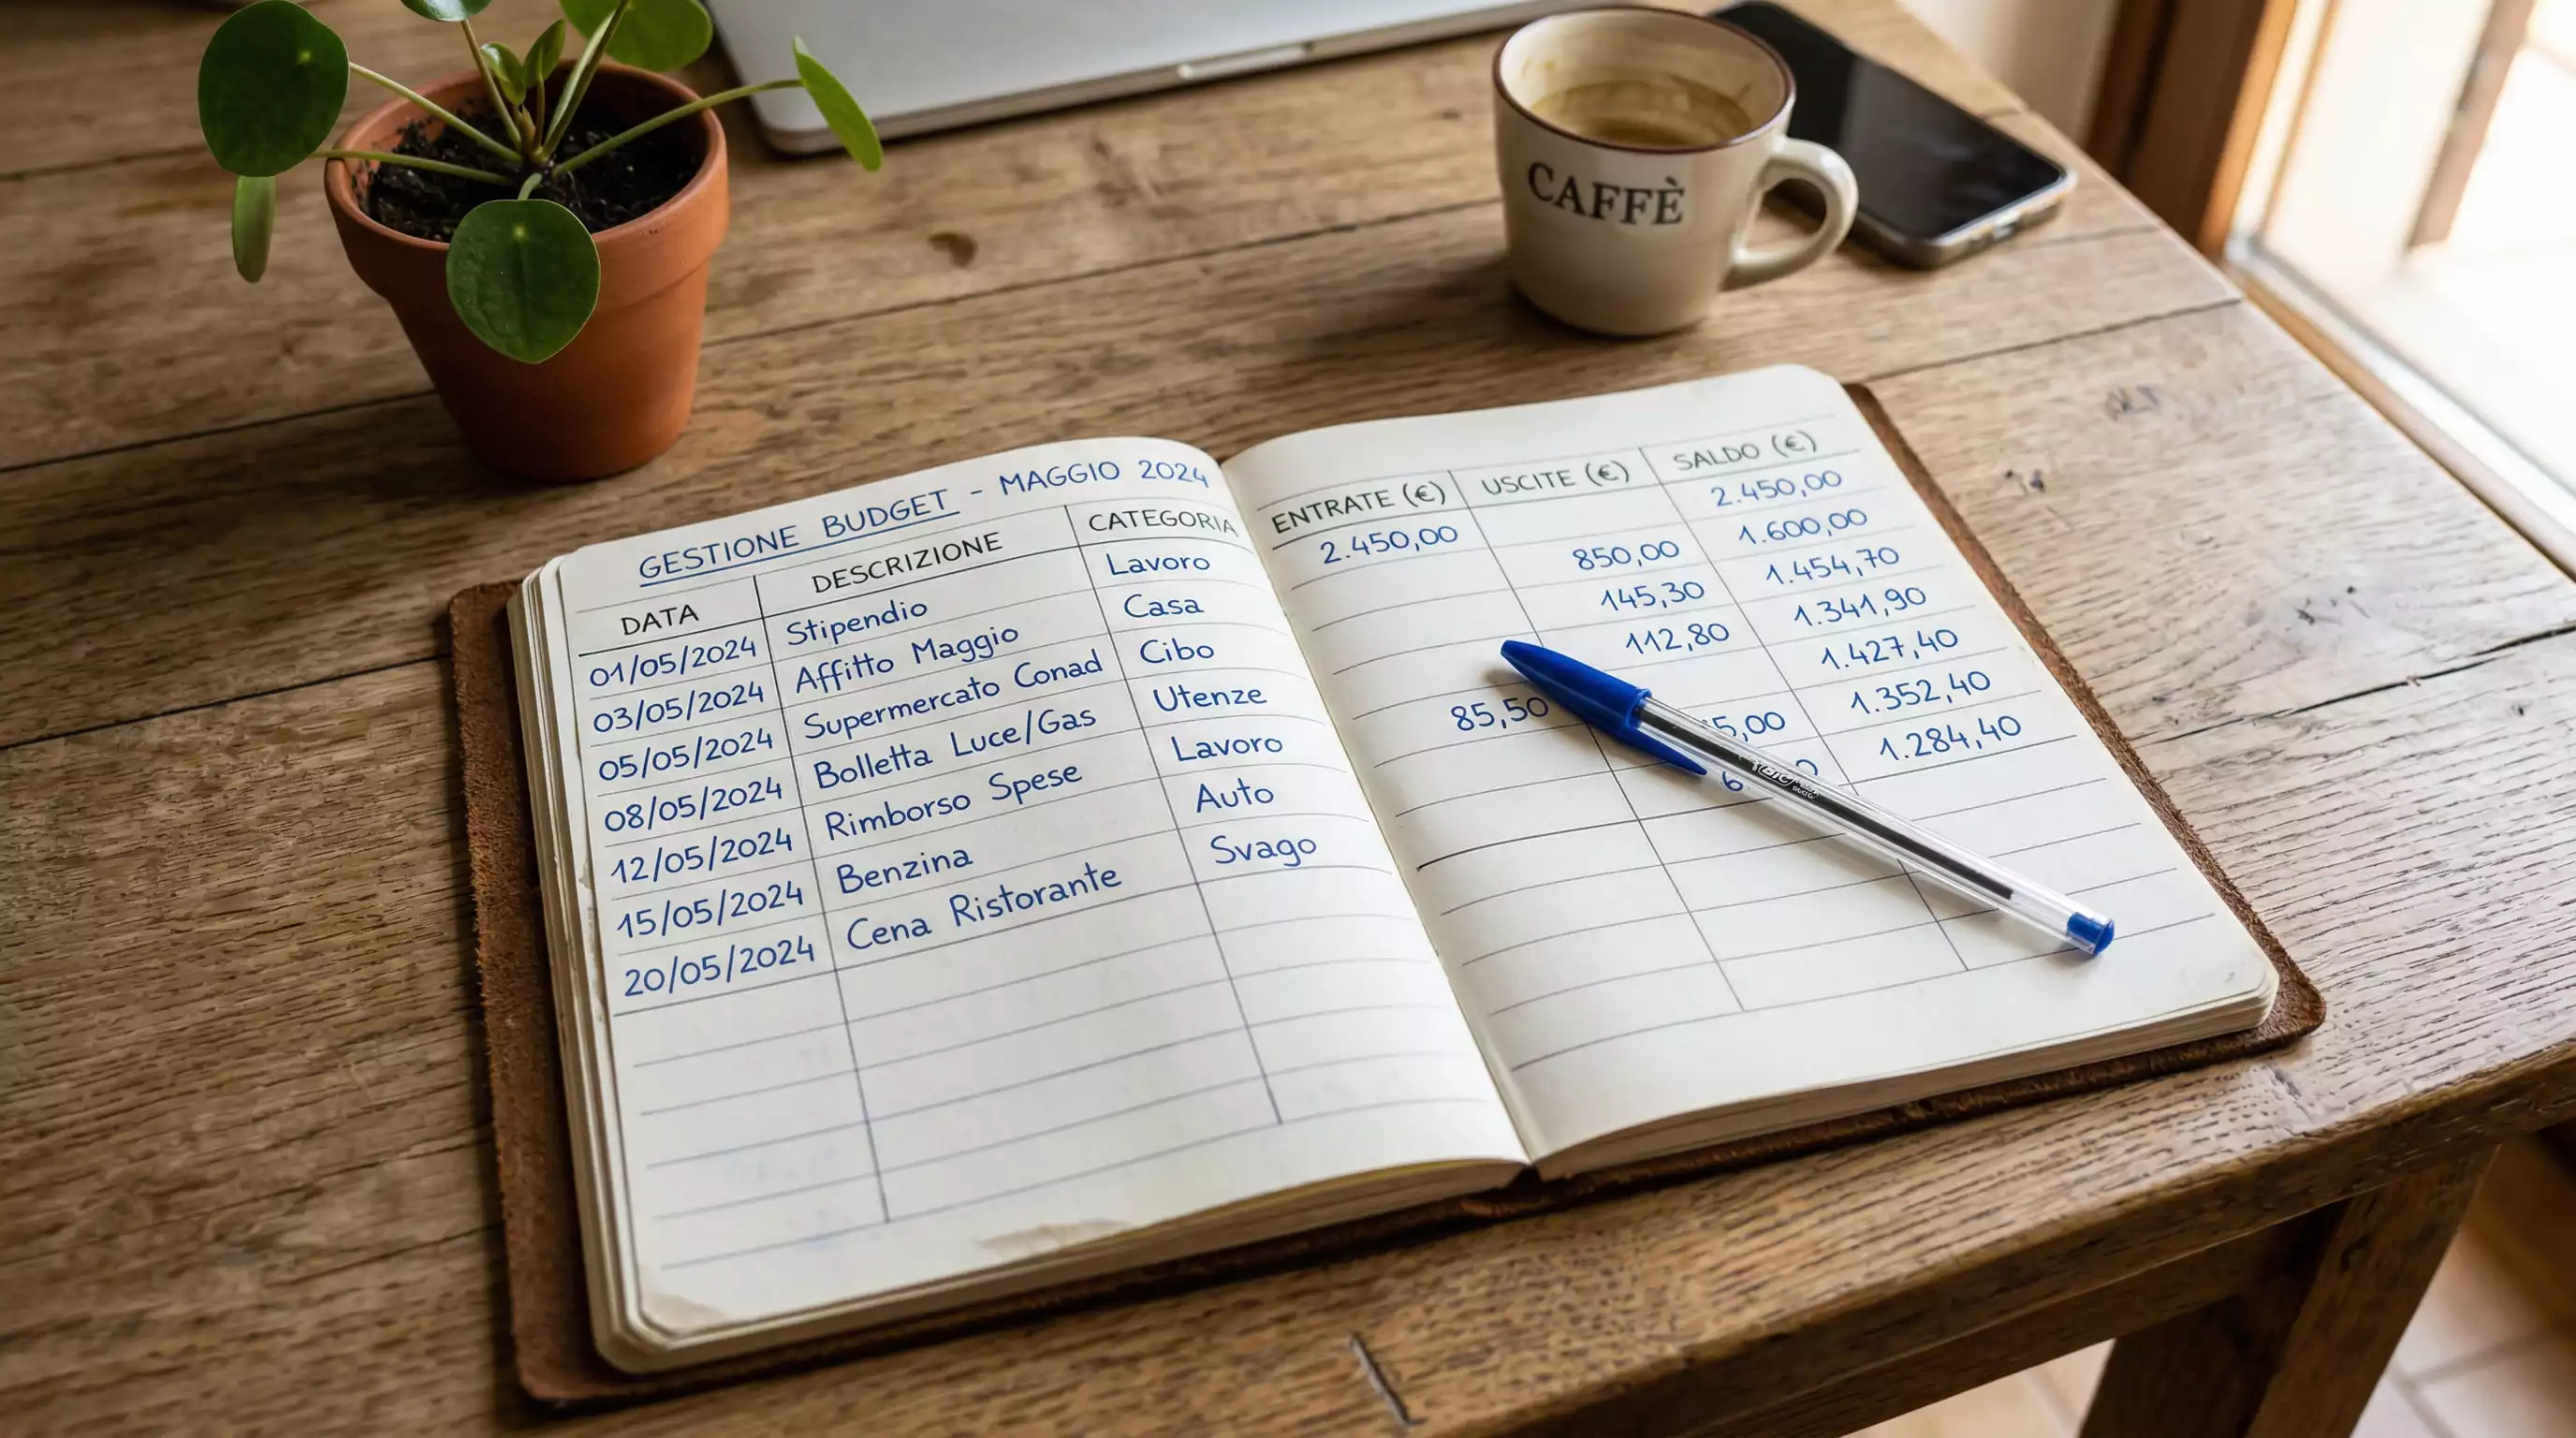 CAFFÈ
GESTIONE BUDGET - MAGGIO 2024
DATA DESCRIZIONE CATEGORIA ENTRATE (€) USCITE (€) SALDO (€)
01/05/2024 Stipendio Lavoro 2.450,00 2.450,00
03/05/2024 Affitto Maggio Casa 850,00 1.600,00
05/05/2024 Supermercato Conad Cibo 145,30 1.454,70
08/05/2024 Bolletta Luce/Gas Utenze 112,80 1.341,90
12/05/2024 Rimborso Spese Lavoro 85,50 1.427,40
15/05/2024 Benzina Auto 1.352,40
20/05/2024 Cena Ristorante Svago 1.284,40